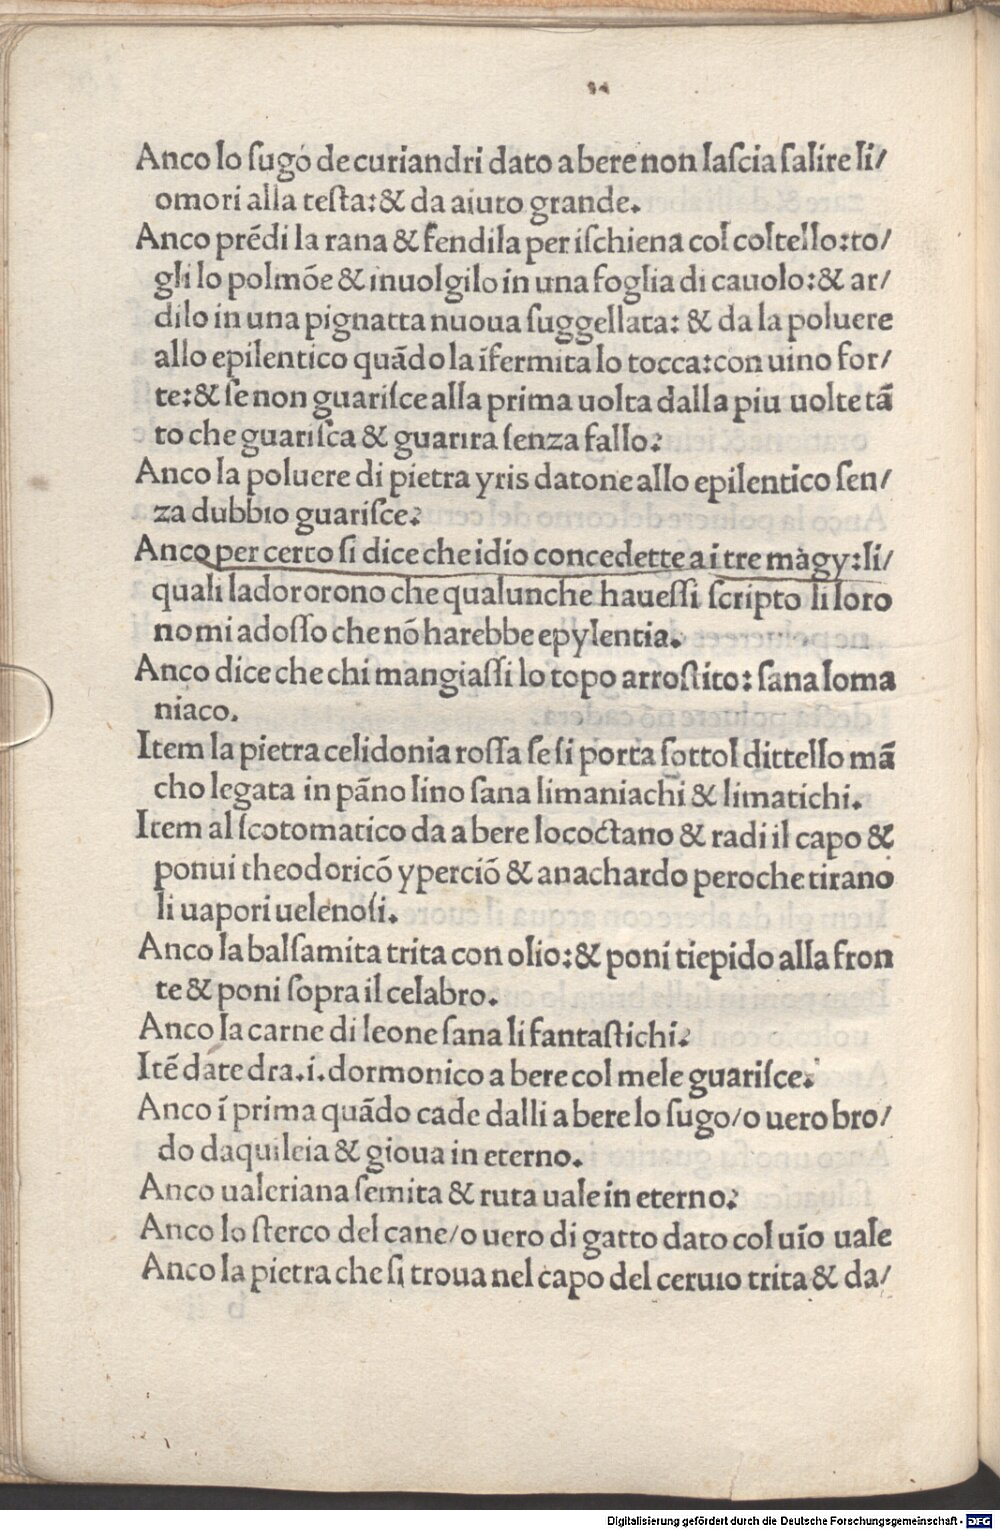 Anco lo ſugo de curiandri dato a bere non laſcia ſalire li/
omori alla teſta:& da aiuto grande.
Anco prẽdi la rana & fendila per iſchiena col coltello:to/
gli lo polmõe & inuolgilo in una foglia di cauolo:& ar/
dilo in una pignatta nuoua ſuggellata: & da la poluere
allo epilentico quãdo la ĩfermita lo tocca:con uino for/
te:& ſe non guariſce alla prima uolta dalla piu uolte tã
to che guariſca & guarira ſenza fallo.
Anco la poluere di pietra yris datone allo epilentico ſen/
za dubbio guariſce.
Anco per certo ſi dice che idio concedette a i tre màgy:li/
quali ladororono che qualunche haueſſi ſcripto li loro
nomi adoſſo che nõ harebbe epylentia.
Anco dice che chi mangiaſſi lo topo arroſtito: ſana loma
niaco.
Item la pietra celidonia roſſa ſe ſi porta ſottol dittello mã
cho legata in pãno lino ſana limaniachi & limatichi.
Item al ſcotomatico da a bere lococtano & radi il capo &
ponui theodoricõ yperciõ & anachardo peroche tirano
li uapori uelenoſi.
Anco la balſamita trita con olio:& poni tiepido alla fron
te & poni ſopra il celabro.
Anco la carne di leone ſana li fantaſtichi.
Itẽ date dra.i.dormonico a bere col mele guariſce.
Anco ĩ prima quãdo cade dalli a bere lo ſugo/o uero bro/
do daquileia & gioua in eterno.
Anco ualeriana ſemita & ruta uale in eterno.
Anco lo ſterco del cane/o uero di gatto dato col uĩo uale
Anco la pietra che ſi troua nel capo del ceruio trita & da/
Digitalisierung gefördert durch die Deutsche Forschungsgemeinschaft - DFG